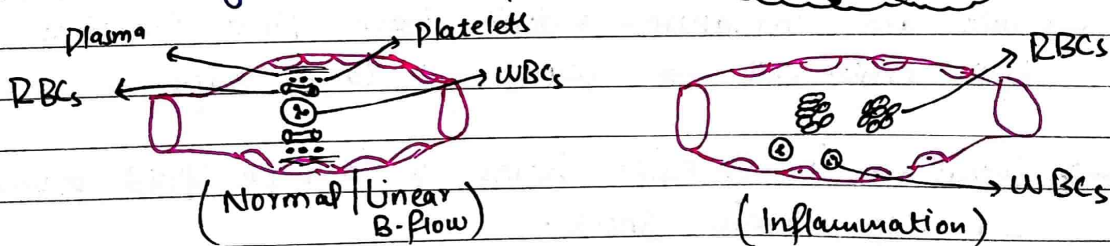 Plasma
Platelets
RBCs
WBCs
(Normal/Linear
B-flow)
RBCs
WBCs
(Inflammation)